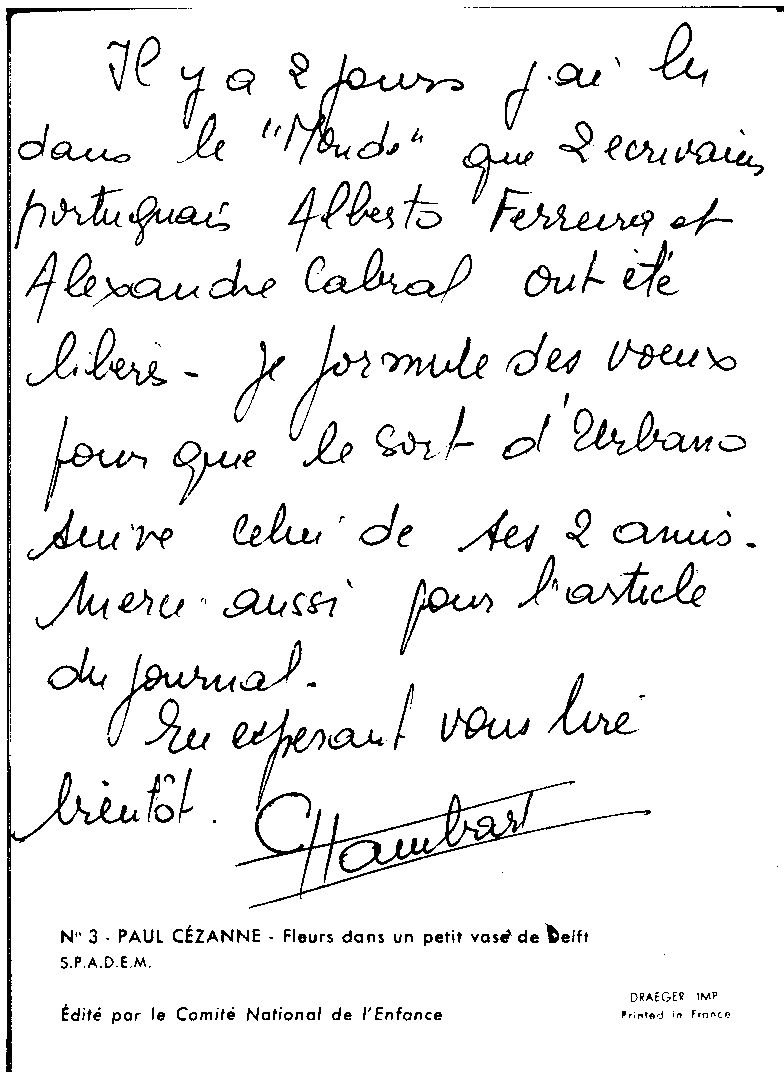 Il y a 2 jours j'ai lu
dans le "Monde" que 2 ecrivains
portugais Alberto Ferreira et
Alexandre Cabral ont été
libérés - Je formule des voeux
pour que le sort d'Urbano
suive celui de ses 2 amis.
Merci aussi pour l'article
du journal.
En esperant vous lire
bientôt.
CHambart
N° 3 - PAUL CÉZANNE - Fleurs dans un petit vase de Delft
S.P.A.D.E.M.
Édité par le Comité National de l'Enfance
DRAEGER IMP
Printed in France